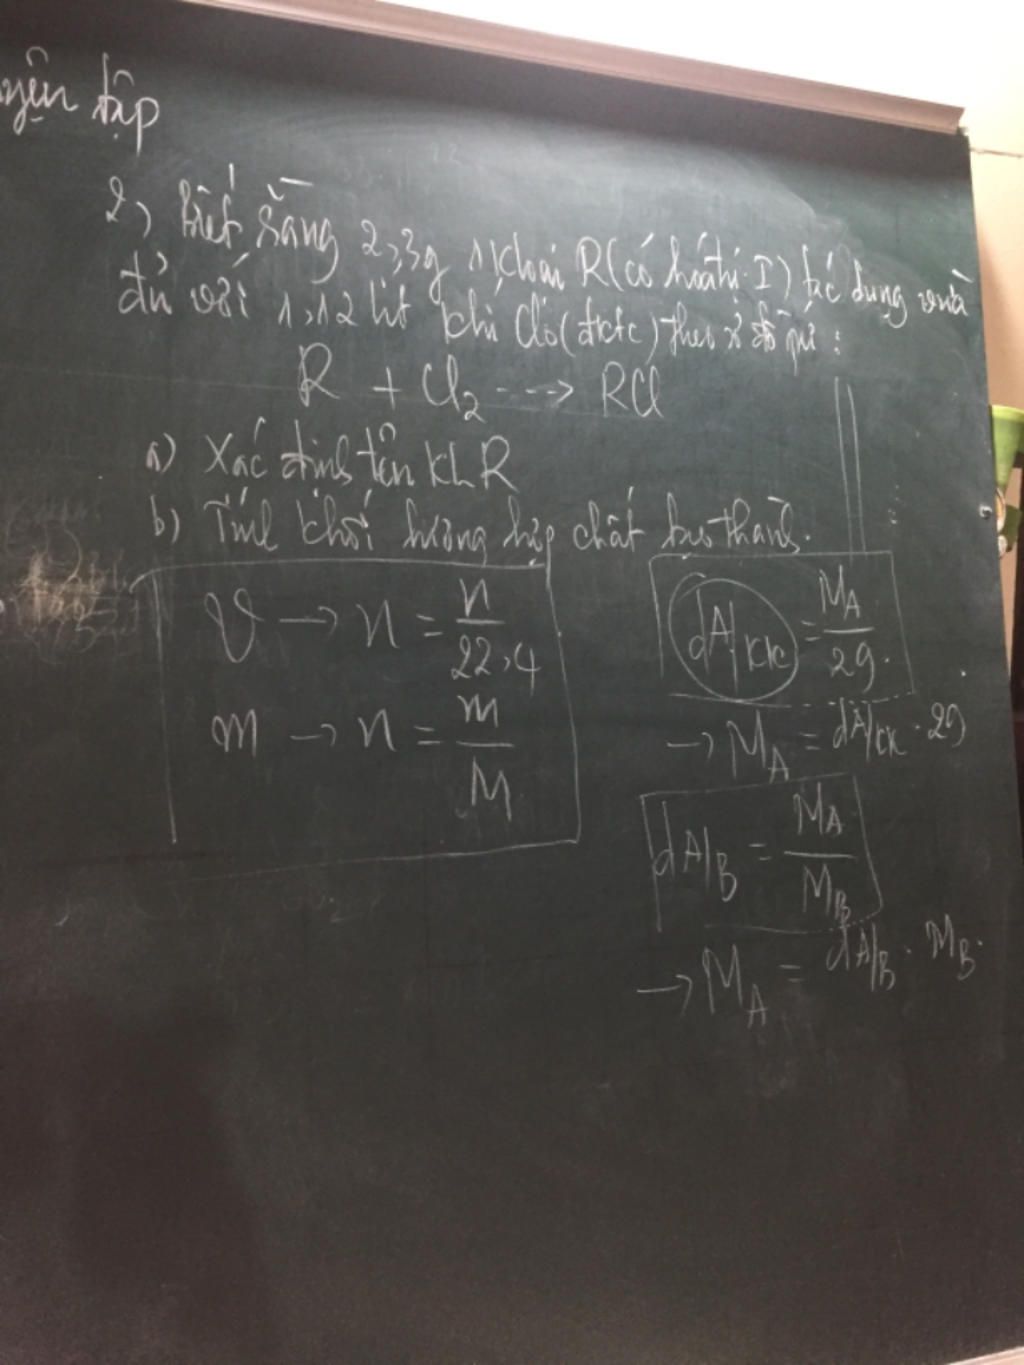 luyện tập
2, Biết rằng 2,3g 1 kloại R(có hoá trị I) tác dụng vừa
đủ với 1,12 lít khí Clo (đktc) theo sơ đồ pứ :
R + Cl₂ ---> RCl
a) Xác định tên KL R
b) Tính khối lượng hợp chất tạo thành.
V → n = n/22,4
m → n = m/M
dA/kk = MA/29.
→ MA = dA/kk . 29
dA/B = MA/MB
→ MA = dA/B . MB.